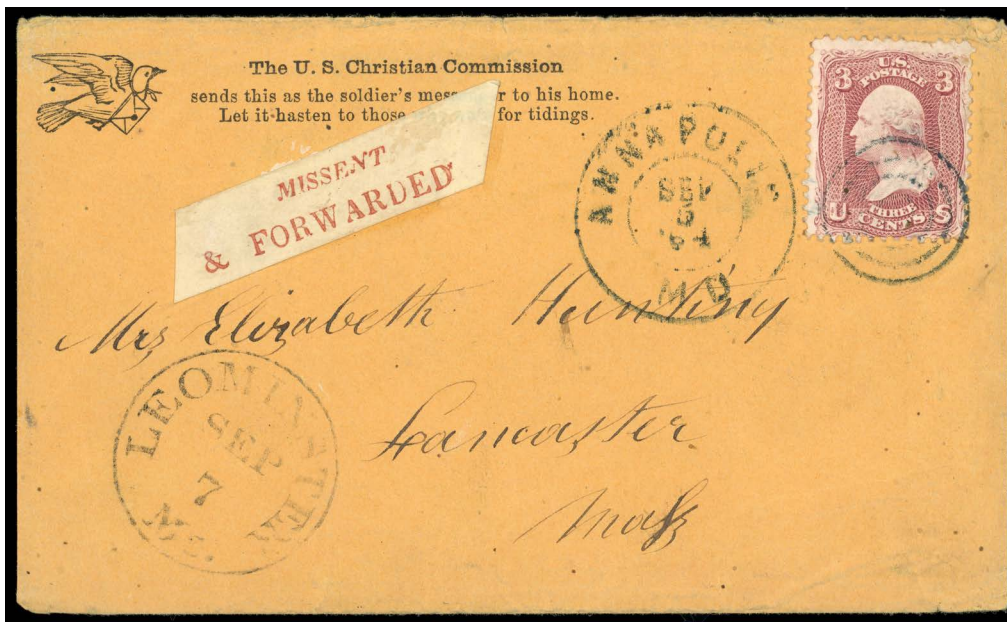 The U. S. Christian Commission
sends this as the soldier's to his home.
Let it hasten to those for tidings.
MISSENT
& FORWARDED
ANNAPOLIS
SEP
5
MD
3 U.S. POSTAGE 3
U THREE CENTS S
Mrs Elizabeth Hunting
Lancaster
Mass
LEOMINSTER
SEP
7
MS.